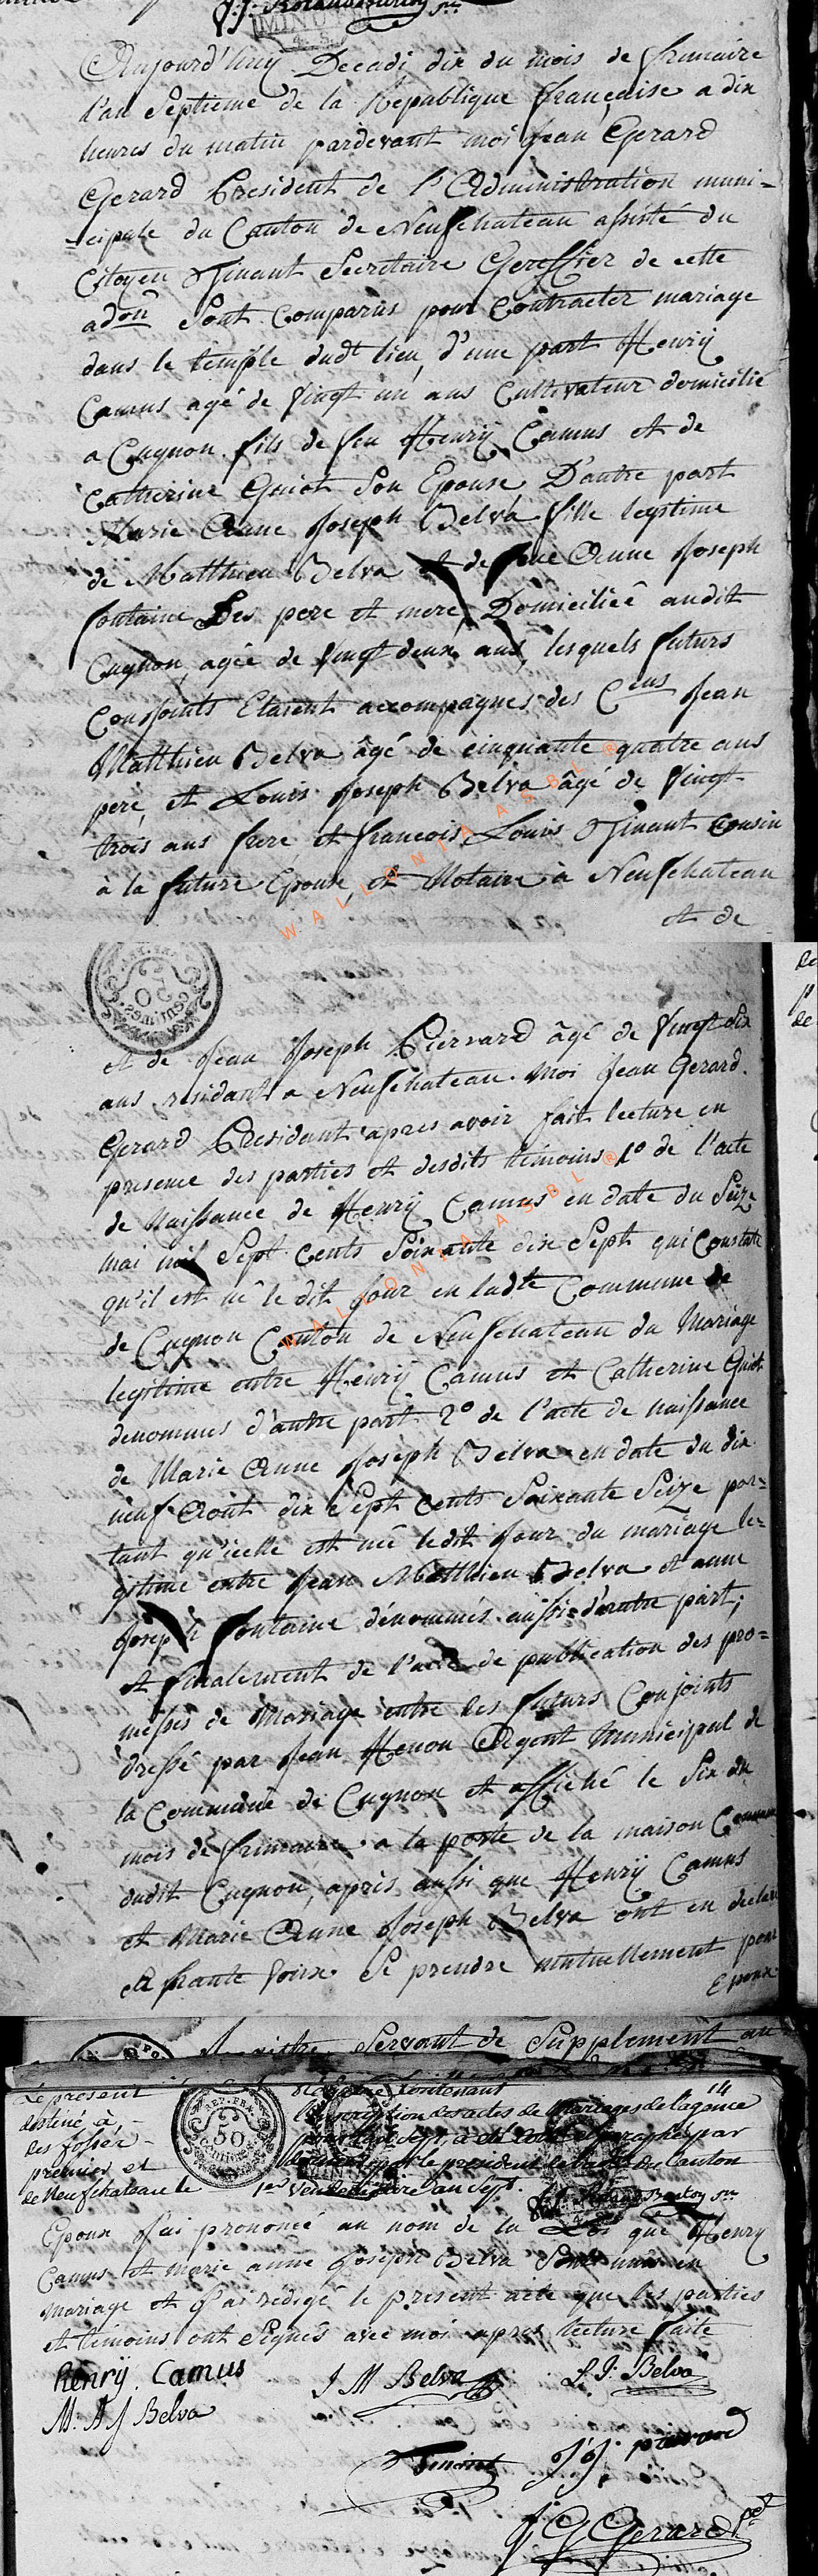 Aujourd'huy Decadi dix du mois de frimaire
l'an Septieme de la Republique française a dix
heures du matin pardevant moi Jean Gerard
Gerard President de l'Administration muni=
=cipale du Canton de Neufchateau assisté du
Citoyen Ninant Secretaire Greffier de cette
adon Sont Comparus pour Contracter mariage
dans le temple dudt lieu, d'une part Henrÿ
Camus agé de Vingt un ans Cultivateur domicilié
a Cugnon fils de feu Henrÿ Camus et de
Catherine Guiot Son Epouse D'autre part
Marie Anne Joseph Belva fille legitime
de Matthieu Belva et de feue Anne Joseph
fontaine Ses pere et mere, Domiciliée audit
Cugnon, agée de Vingt deux ans, lesquels futurs
Conjoints Etaient accompagnés des Cens Jean
Matthieu Belva âgé de cinquante quatre ans
pere, et Louis Joseph Belva âgé de Vingt-
trois ans frere, et francois Louis Ninant Cousin
à la future Epouse, et Notaire à Neufchateau
et de
WALLONIA ASBL ®
et de Jean Joseph Pierrard âgé de Vingt Six
ans residant a Neufchateau. Moi Jean Gerard
Gerard President apres avoir fait lecture en
presence des parties et desdits témoins 1º de l'acte
de Naissance de Henrÿ Camus en date du Seize
mai mil Sept Cents Soixante dix Sept qui Constate
qu'il est né le dit Jour en ladte Commune de
de Cugnon Canton de Neufchateau du Mariage
legitime entre Henrÿ Camus et Catherine Guiot
denommés d'autre part 2º de l'acte de naissance
de Marie Anne Joseph Belva en date du dix
neuf Août dix Sept Cents Soixante Seize por=
tant qu'icelle est née ledit Jour du mariage le=
gitime entre Jean Matthieu Belva et anne
Joseph fontaine dénommés aussi d'autre part;
et finalement de l'acte de publication des pro=
messes de Mariage entre les futurs Conjoints
dressé par Jean Henon Agent Municipal de
la Commune de Cugnon et affiché le Six du
mois de frimaire a la porte de la maison Commune
dudit Cugnon, après aussi que Henrÿ Camus
et Marie Anne Joseph Belva ont eu declaré
a haute voix Se prendre mutuellement pour
Epoux
WALLONIA ASBL ®
Servant de Supplement au
Le present
destiné à
des fossés
premier et
de Neufchateau le
14
contenant
l'inscription des actes de Mariages de l'agence
par le president du Canton
1er Vendemiaire an Sept.
50
Epoux J'ai prononcé au nom de la Loi que Henry
Camus et Marie anne Joseph Belva Sont unis en
mariage et J'ai rédigé le present acte que les parties
et témoins ont Signés avec moi apres lecture faite
Henrÿ Camus
J M Belva
L. J. Belva
M. A J Belva
Ninant
J J pierard
J. G Gerard Pt